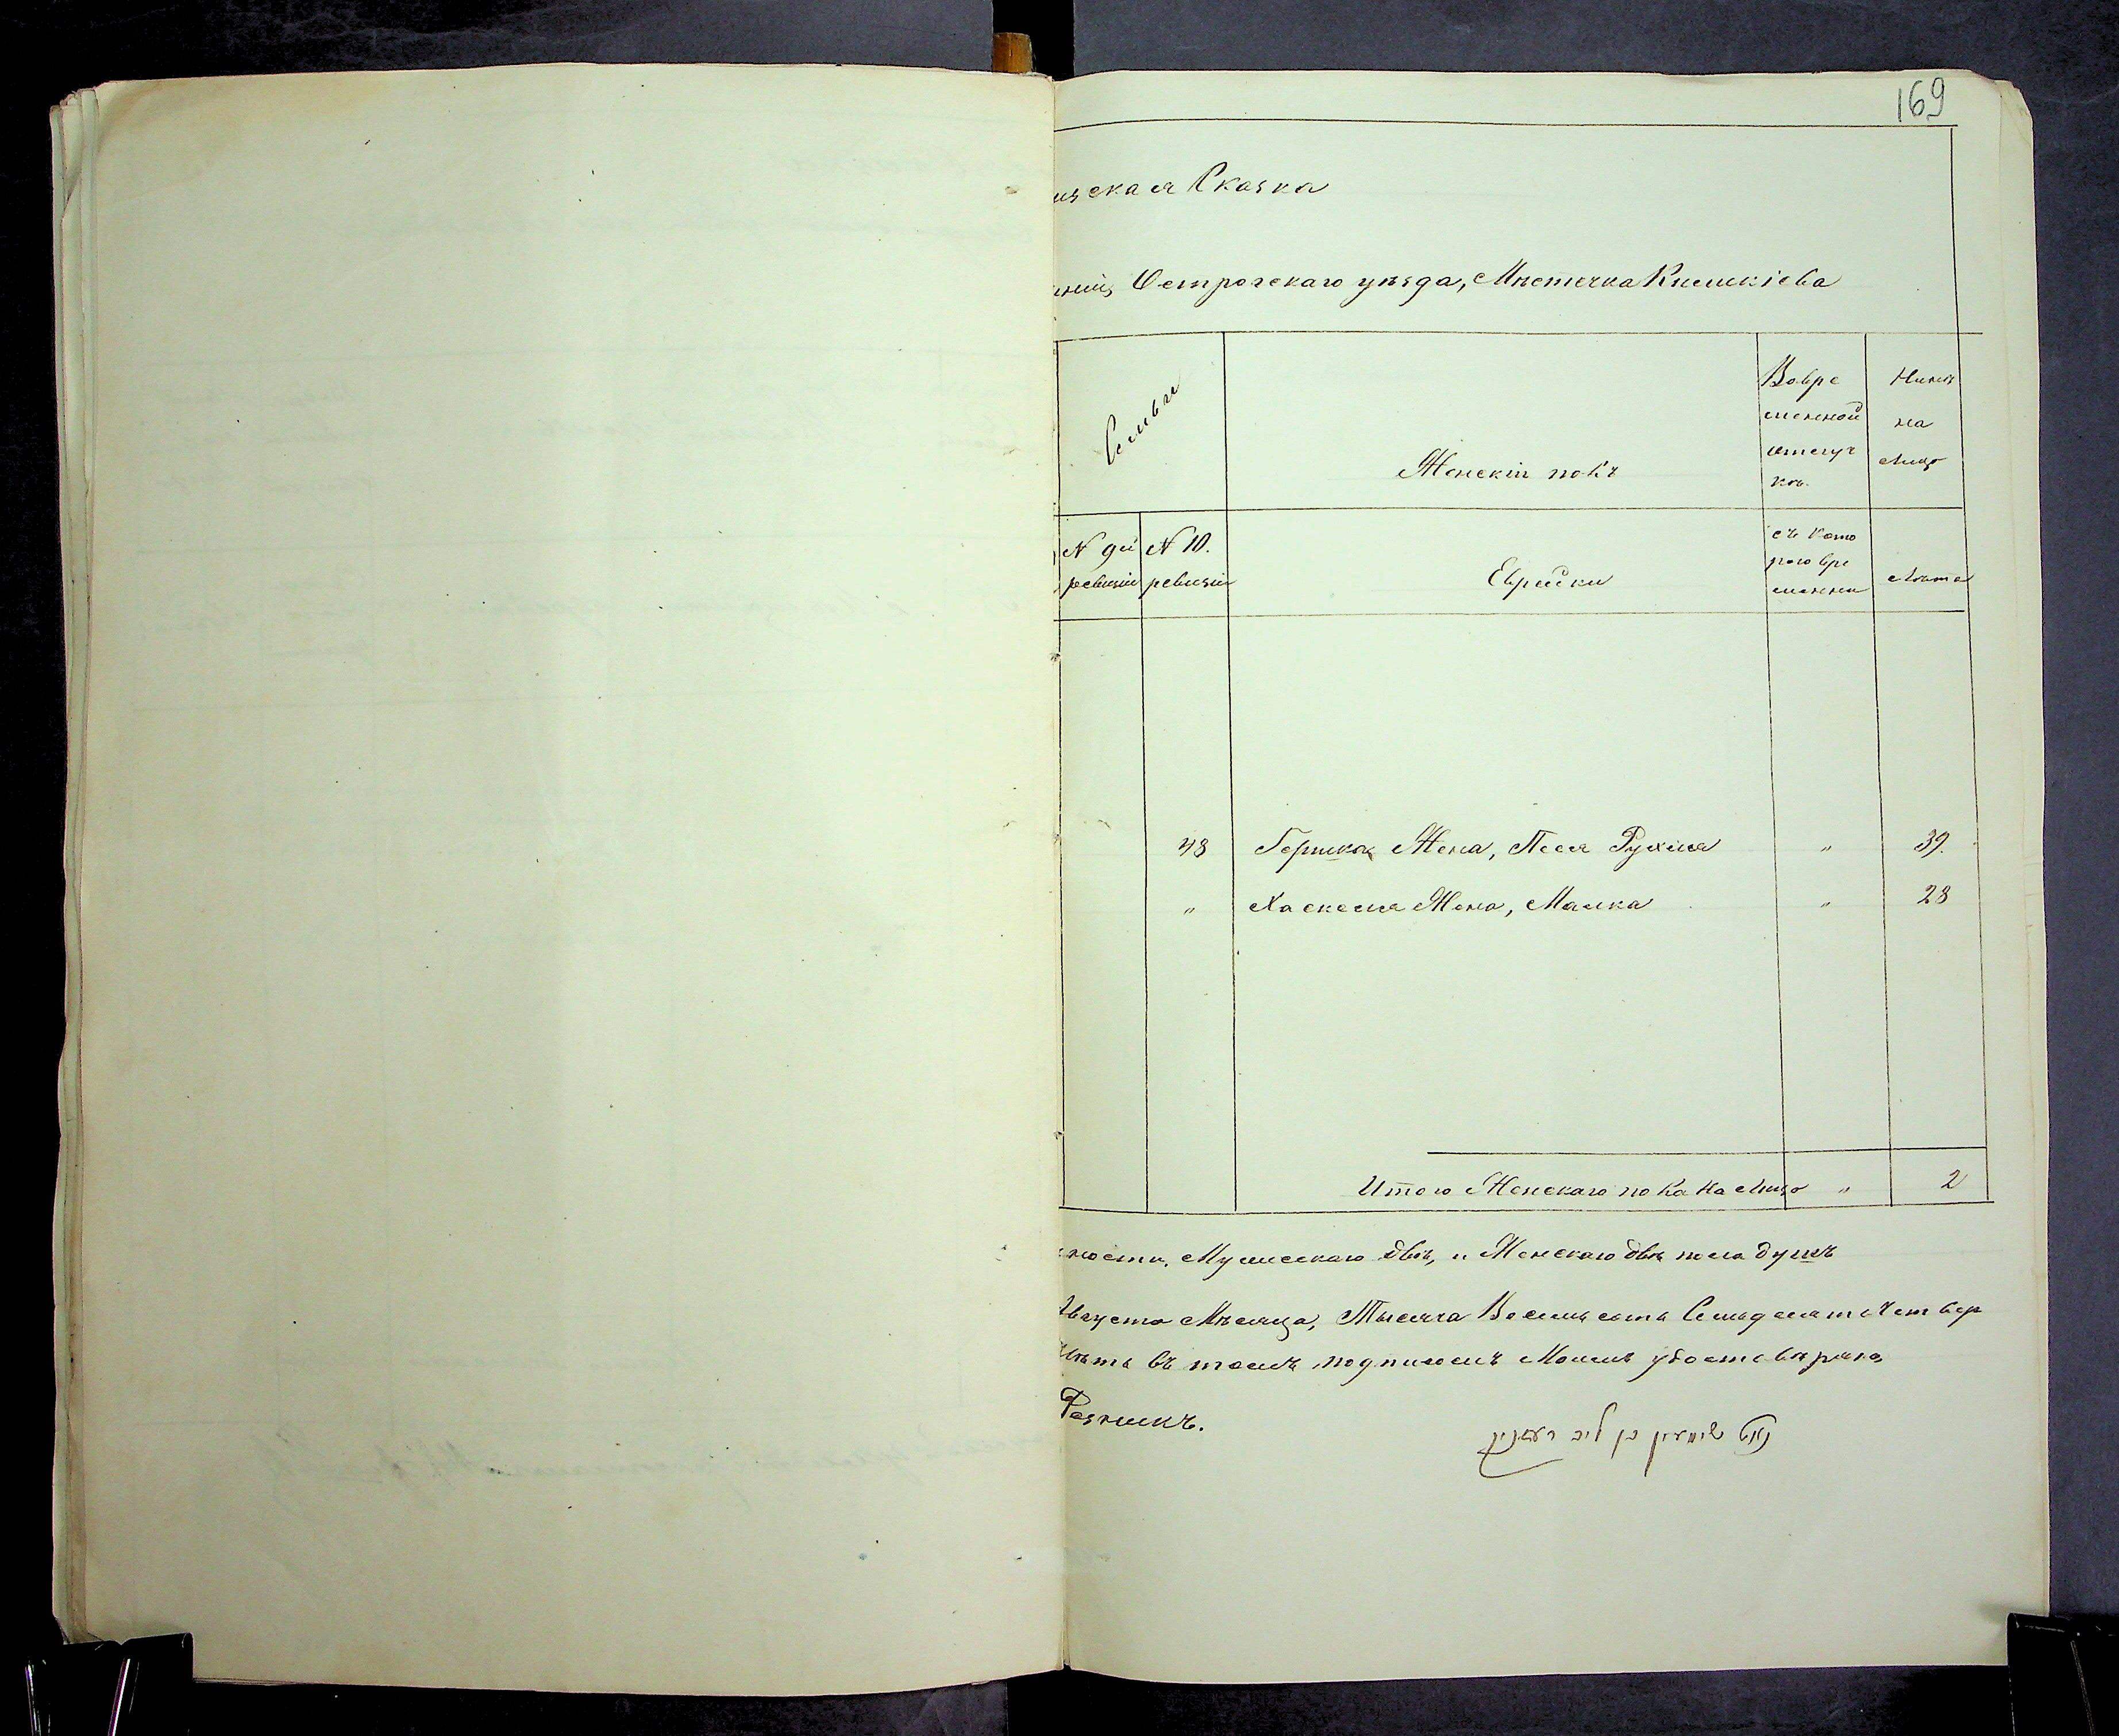 169
изская Сказка
Острогскаго уѣзда, Мѣстечка Киликіева
Семьи
Женскій полъ
Во вре
менной
отлуч
кѣ.
Нинѣ
на
лицо
N 9й
ревизіи
N 10.
ревизіи
Еврейки
съ кото
рого вре
менни
Лѣта
43 Гершка Жена, Песя Рухля " 39.
" Хаскеля Жена, Малка " 28
Итого Женскаго пола на Лицо " 2
ности, Мужескаго двѣ, и Женскаго двѣ пола душъ
Августа Мѣсяца, Тысяча Восемь сотъ Семьдесятъ Четвер
въ томъ подписомъ Моимъ удостовѣряю,
Резникъ.
שימעון בן ליב רעזניק